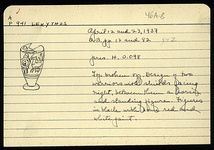 A
P 941 LEKYTHOS
April 12 and 22, 1929
pp. 12 and 82
pres. H. 0.098
Top broken off. Design of two
warriors with shields facing
right, between them a
and standing figure. Figures
in black with red and
white paint.